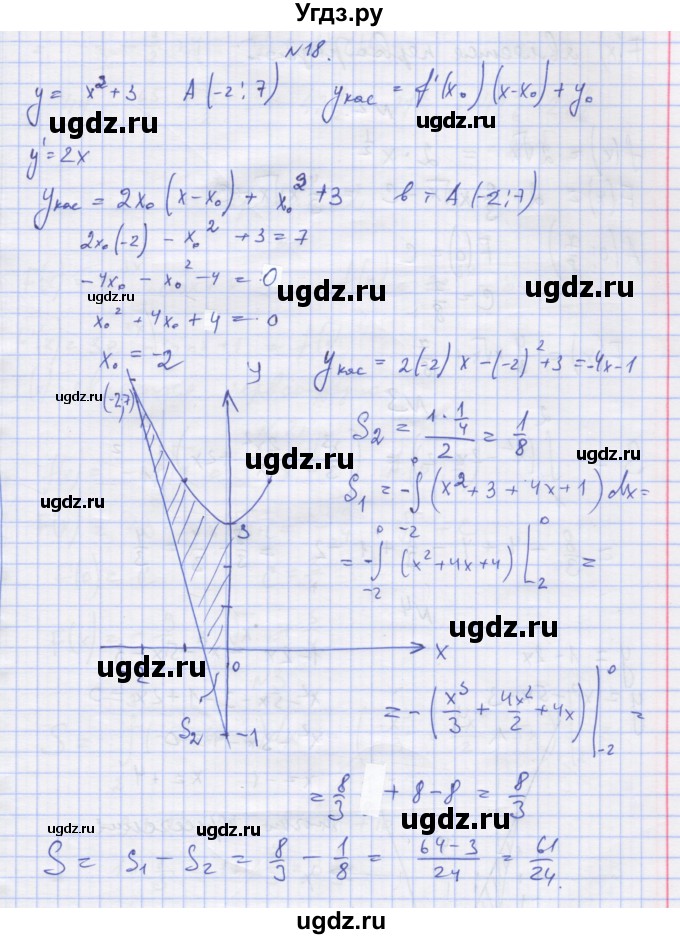 Угдз.ру
N18.
y = x²+3 A(-2; 7) yкас = f'(x₀)(x-x₀)+y₀
ugdz.ru ugdz.ru
y' = 2x
yкас = 2x₀(x-x₀) + x₀²+3 в т A(-2; 7)
2x₀(-2) - x₀² +3 = 7
-4x₀ - x₀² -4 = 0
ugdz.ru ugdz.ru ugdz.ru
x₀² + 4x₀ + 4 = 0
x₀ = -2 yкас = 2(-2)x -(-2)²+3 = -4x-1
y
ugdz.ru (-2;7)
S₂ = (1·1/4)/2 = 1/8
ugdz.ru ugdz.ru
S₁ = -∫₋₂⁰(x²+3+4x+1)dx =
3
= -∫₋₂⁰(x²+4x+4)|₋₂⁰ =
ugdz.ru
x
ugdz.ru
-2 0
= -(x³/3 + 4x²/2 + 4x)|₋₂⁰ =
S₂ -1
= 8/3 + 8-8 = 8/3
ugdz.ru ugdz.ru
S = S₁ - S₂ = 8/3 - 1/8 = (64-3)/24 = 61/24.
ugdz.ru